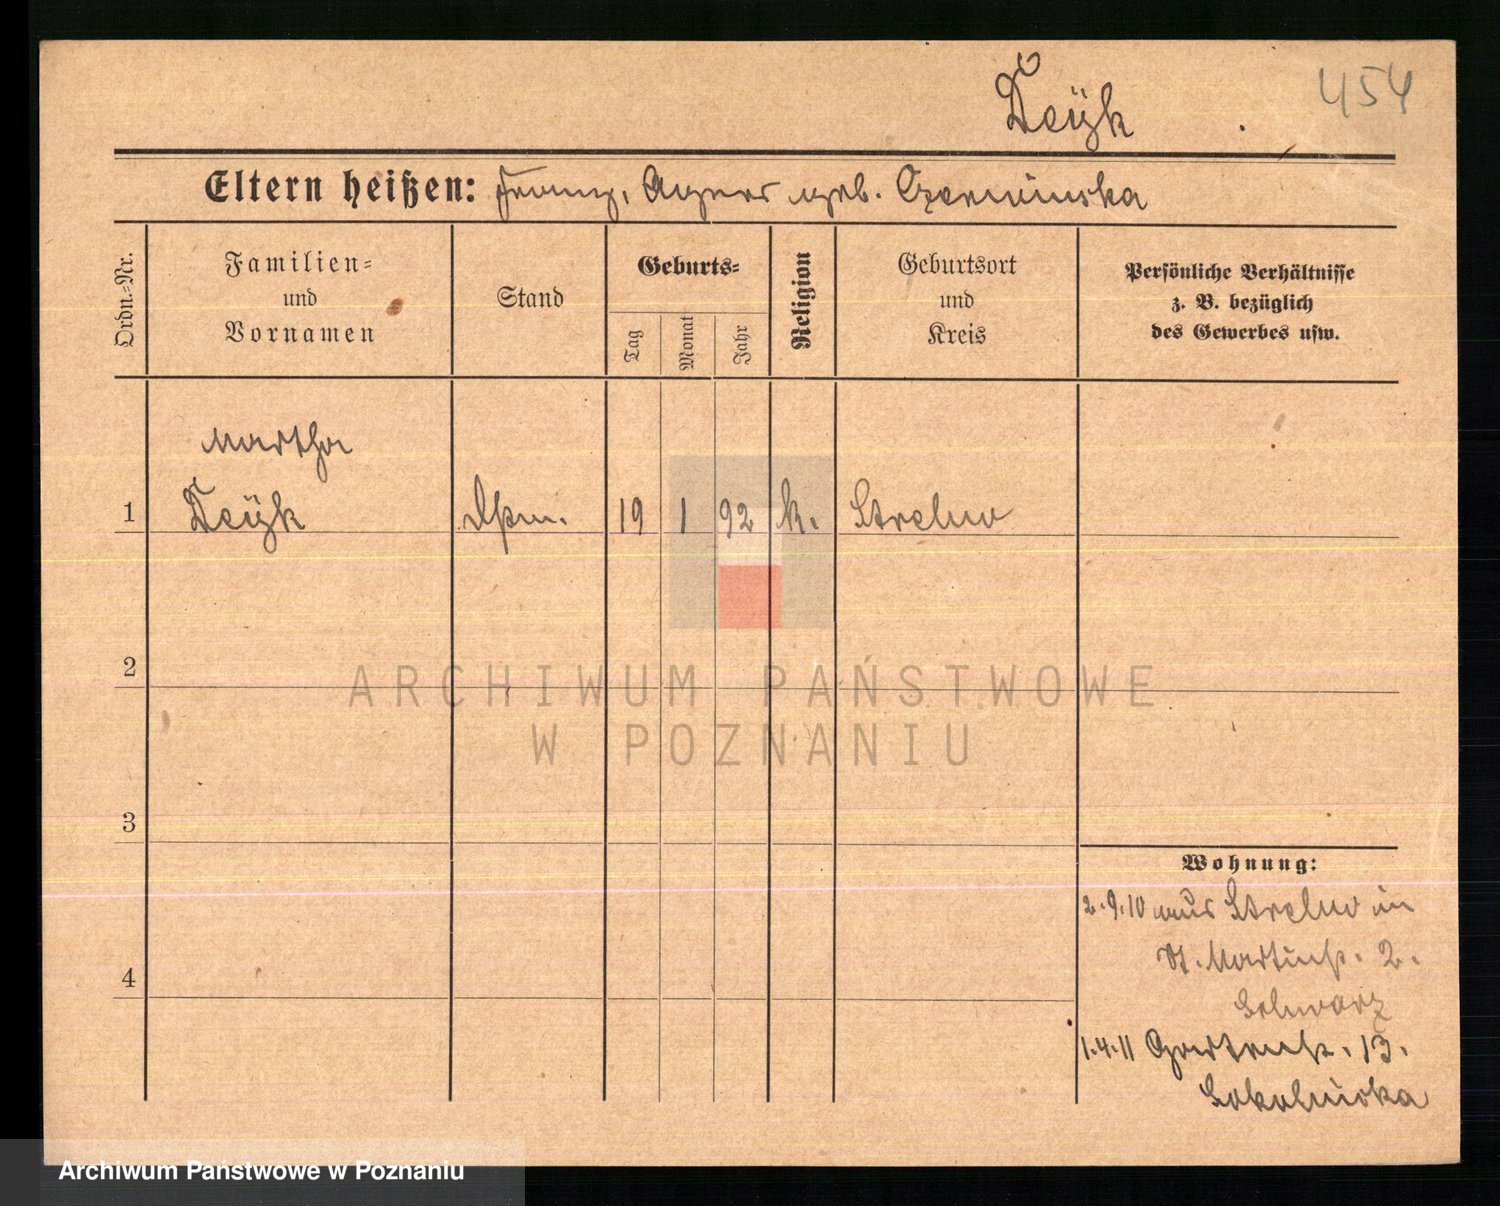 454
Deÿk
Eltern heißen: Franz, Agnes geb. Czerninska
Ordn.-Nr.
Familien-
und
Vornamen
Stand
Geburts-
Tag
Monat
Jahr
Religion
Geburtsort
und
Kreis
Persönliche Verhältnisse
z. B. bezüglich
des Gewerbes usw.
Martha
1 Deÿk 19 1 92 k. Strelno
2
3
4
Wohnung:
2.9.10 aus Strelno in
St. Martinstr. 2.
Schwarz
1.4.11 13.
Sokolnicka
ARCHIWUM PAŃSTWOWE
W POZNANIU
Archiwum Państwowe w Poznaniu